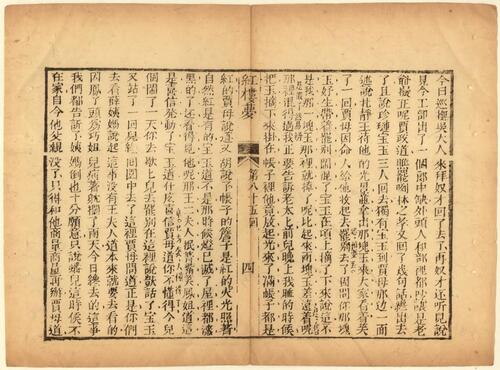 今日巡撫吳大人來拜奴才回了去了再奴才还听見說
見今工部出了一個郎中缺外頭人和部裡都吵嚷是老
爺擬正呢賈政道瞧罷咧林之孝又回了幾句話纔出去
了且說珍璉寶玉三人回去獨有寶玉到賈母那邊一面
述說北靜王待他的光景並拿出那塊玉來大家看着笑
了一回賈母因命人給他收起去罷別丟了因問你那塊
玉好生帶着罷別鬧混了寶玉在項上摘了下來說這不
是我那一塊玉那裡就掉了呢比起來兩塊玉差遠着呢
那裡混得過我正要告訴老太太前兒晚上我睡的時候
把玉摘下來掛在帳子裡他竟放起光來了滿帳子都是
紅樓夢
第八十五回
四
紅的賈母說道又胡說了帳子的簷子是紅的火光照着
自然紅是有的寶玉道不是那時候燈已滅了屋裡都漆
黑的了還看得見他呢邢王二夫人抿着嘴笑鳳姐道這
是喜信發動了寶玉道什庅喜信賈母道你不懂得今兒
個鬧了一天你去歇歇兒去罷別在這裡說獃話了寶玉
又站了一回兒纔回園中去了這裡賈母問道正是你們
去看薛姨媽說起這事没有王夫人道本來就要去看的
因鳳丫頭爲巧姐兒病着躭擱了兩天今日纔去的這事
我們都告訴了姨媽倒也十分願意只說蟠兒這時候不
在家目今他父親没了只得和他商量商量再辦賈母道